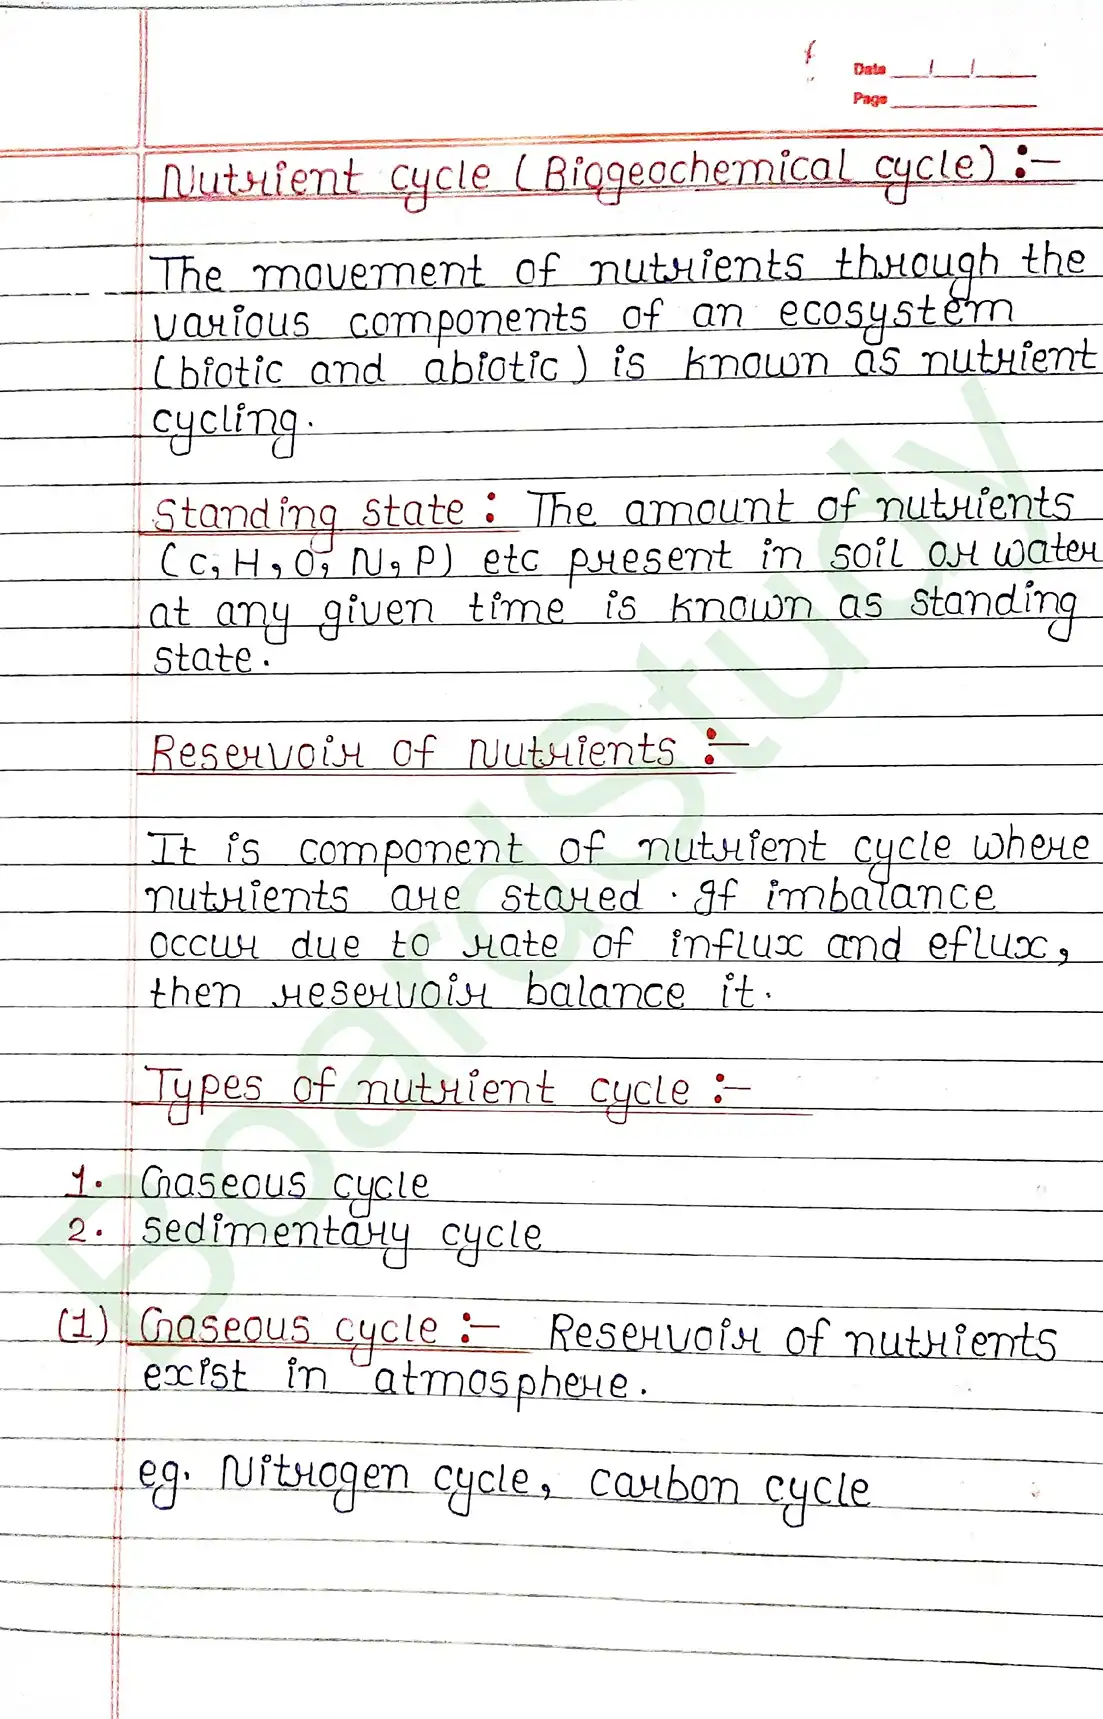 Date / /
Page
Nutrient cycle (Biogeochemical cycle) :-
The movement of nutrients through the
various components of an ecosystem
(biotic and abiotic) is known as nutrient
cycling.
Standing state : The amount of nutrients
(C, H, O, N, P) etc present in soil or water
at any given time is known as standing
state.
Reservoir of Nutrients :-
It is component of nutrient cycle where
nutrients are stored. If imbalance
occur due to rate of influx and eflux,
then reservoir balance it.
Types of nutrient cycle :-
1. Gaseous cycle
2. Sedimentary cycle
(1) Gaseous cycle :- Reservoir of nutrients
exist in atmosphere.
eg. Nitrogen cycle, carbon cycle
BoardStudy